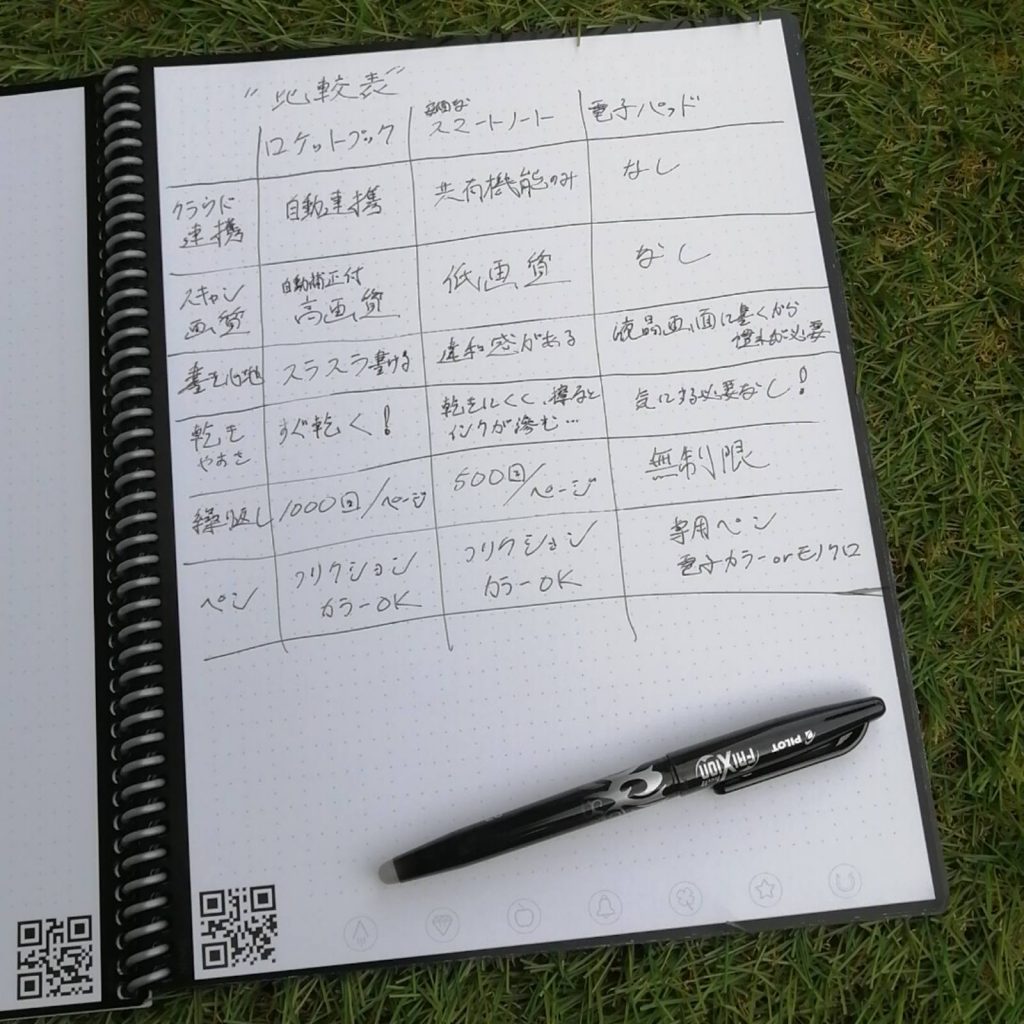 "比較表"
ロケットブック
スマートノート
電子パッド
クラウド
連携
自動連携
共有機能のみ
なし
スキャン
画質
自動補正付
高画質
低画質
なし
書き心地
スラスラ書ける
違和感がある
液晶画面に書くから
慣れが必要
乾き
やすさ
すぐ乾く!
乾きにくく、擦ると
インクが滲む…
気にする必要なし!
繰り返し
1000回/ページ
500回/ページ
無制限
ペン
フリクション
カラーOK
フリクション
カラーOK
専用ペン
電子カラーorモノクロ
PILOT
FRIXION